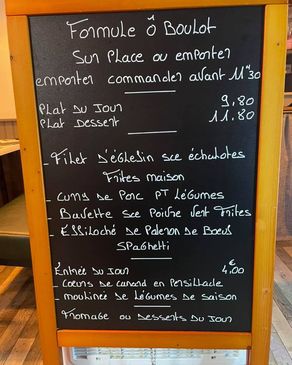 Formule Ô Boulot
Sur Place ou emporter
emporter commander avant 11"30
Plat du Jour 9,80
Plat Dessert 11,80
Filet d'églefin sce échalotes
Frites maison
- Curry de Porc PT Légumes
- Bavette sce Poivre vert Frites
- Effiloché de Paleron de Bœuf
Spaghetti
Entrée du Jour 4,00€
- Cœurs de canard en Persillade
- moulinée de Légumes de saison
Fromage ou Desserts du Jour